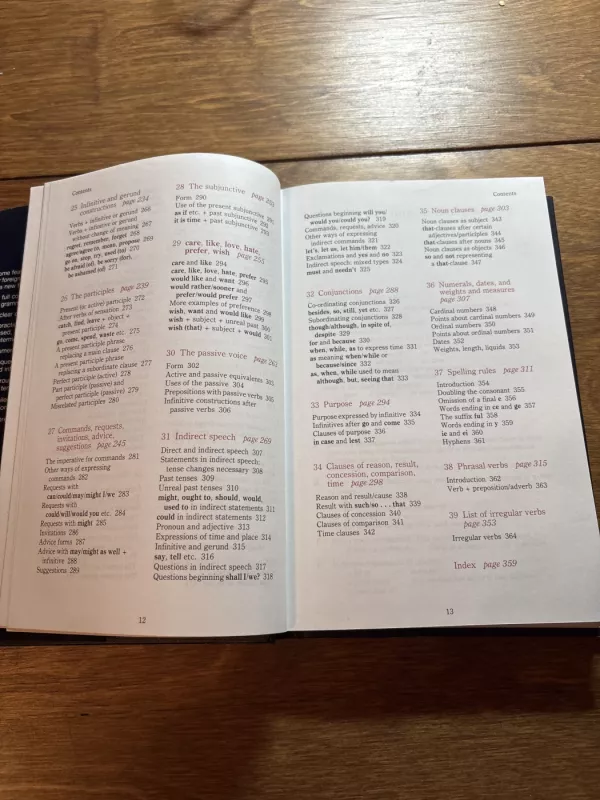 Contents
25 Infinitive and gerund
constructions page 234
Verbs + infinitive or gerund 266
Verbs + infinitive or gerund
without change of meaning 267
regret, remember, forget 268
agree/agree to, mean, propose 269
go on, stop, try, used (to) 270
be afraid (of), be sorry (for),
be ashamed (of) 271
26 The participles page 239
Present (or active) participle 272
After verbs of sensation 273
catch, find, leave + object +
present participle 274
go, come, spend, waste etc. 275
A present participle phrase
replacing a main clause 276
A present participle phrase
replacing a subordinate clause 277
Perfect participle (active) 278
Past participle (passive) and
perfect participle (passive) 279
Misrelated participles 280
27 Commands, requests,
invitations, advice,
suggestions page 245
The imperative for commands 281
Other ways of expressing
commands 282
Requests with
can/could/may/might I/we 283
Requests with
could/will/would you etc. 284
Requests with might 285
Invitations 286
Advice forms 287
Advice with may/might as well +
infinitive 288
Suggestions 289
28 The subjunctive page
Form 290
Use of the present subjunctive
as if etc. + past subjunctive
it is time + past subjunctive
29 care, like, love, hate,
prefer, wish page
care and like 294
care, like, love, hate, prefer 295
would like and want 296
would rather/sooner and
prefer/would prefer 297
More examples of preference 298
wish, want and would like 299
wish + subject + unreal past 300
wish (that) + subject + would 301
30 The passive voice page
Form 302
Active and passive equivalents 303
Uses of the passive 304
Prepositions with passive verbs 305
Infinitive constructions after
passive verbs 306
31 Indirect speech page 269
Direct and indirect speech 307
Statements in indirect speech:
tense changes necessary 308
Past tenses 309
Unreal past tenses 310
might, ought to, should, would,
used to in indirect statements 311
could in indirect statements 312
Pronoun and adjective 313
Expressions of time and place 314
Infinitive and gerund 315
say, tell etc. 316
Questions in indirect speech 317
Questions beginning shall I/we? 318
12
Contents
Questions beginning will you/
would you/could you? 319
Commands, requests, advice 320
Other ways of expressing
indirect commands 321
let's, let us, let him/them 322
Exclamations and yes and no 323
Indirect speech: mixed types 324
must and needn't 325
32 Conjunctions page 288
Co-ordinating conjunctions 326
besides, so, still, yet etc. 327
Subordinating conjunctions 328
though/although, in spite of,
despite 329
for and because 330
when, while, as to express time 331
as meaning when/while or
because/since 332
as, when, while used to mean
although, but, seeing that 333
33 Purpose page 294
Purpose expressed by infinitive 334
Infinitives after go and come 335
Clauses of purpose 336
in case and lest 337
34 Clauses of reason, result,
concession, comparison,
time page 298
Reason and result/cause 338
Result with such/so . . . that 339
Clauses of concession 340
Clauses of comparison 341
Time clauses 342
35 Noun clauses page 303
Noun clauses as subject 343
that-clauses after certain
adjectives/participles 344
that clauses after nouns 345
Noun clauses as objects 346
so and not representing
a that-clause 347
36 Numerals, dates, and
weights and measures
page 307
Cardinal numbers 348
Points about cardinal numbers 349
Ordinal numbers 350
Points about ordinal numbers 351
Dates 352
Weights, length, liquids 353
37 Spelling rules page 311
Introduction 354
Doubling the consonant 355
Omission of a final e 356
Words ending in ce and ge 357
The suffix ful 358
Words ending in y 359
ie and ei 360
Hyphens 361
38 Phrasal verbs page 315
Introduction 362
Verb + preposition/adverb 363
39 List of irregular verbs
page 353
Irregular verbs 364
Index page 359
13